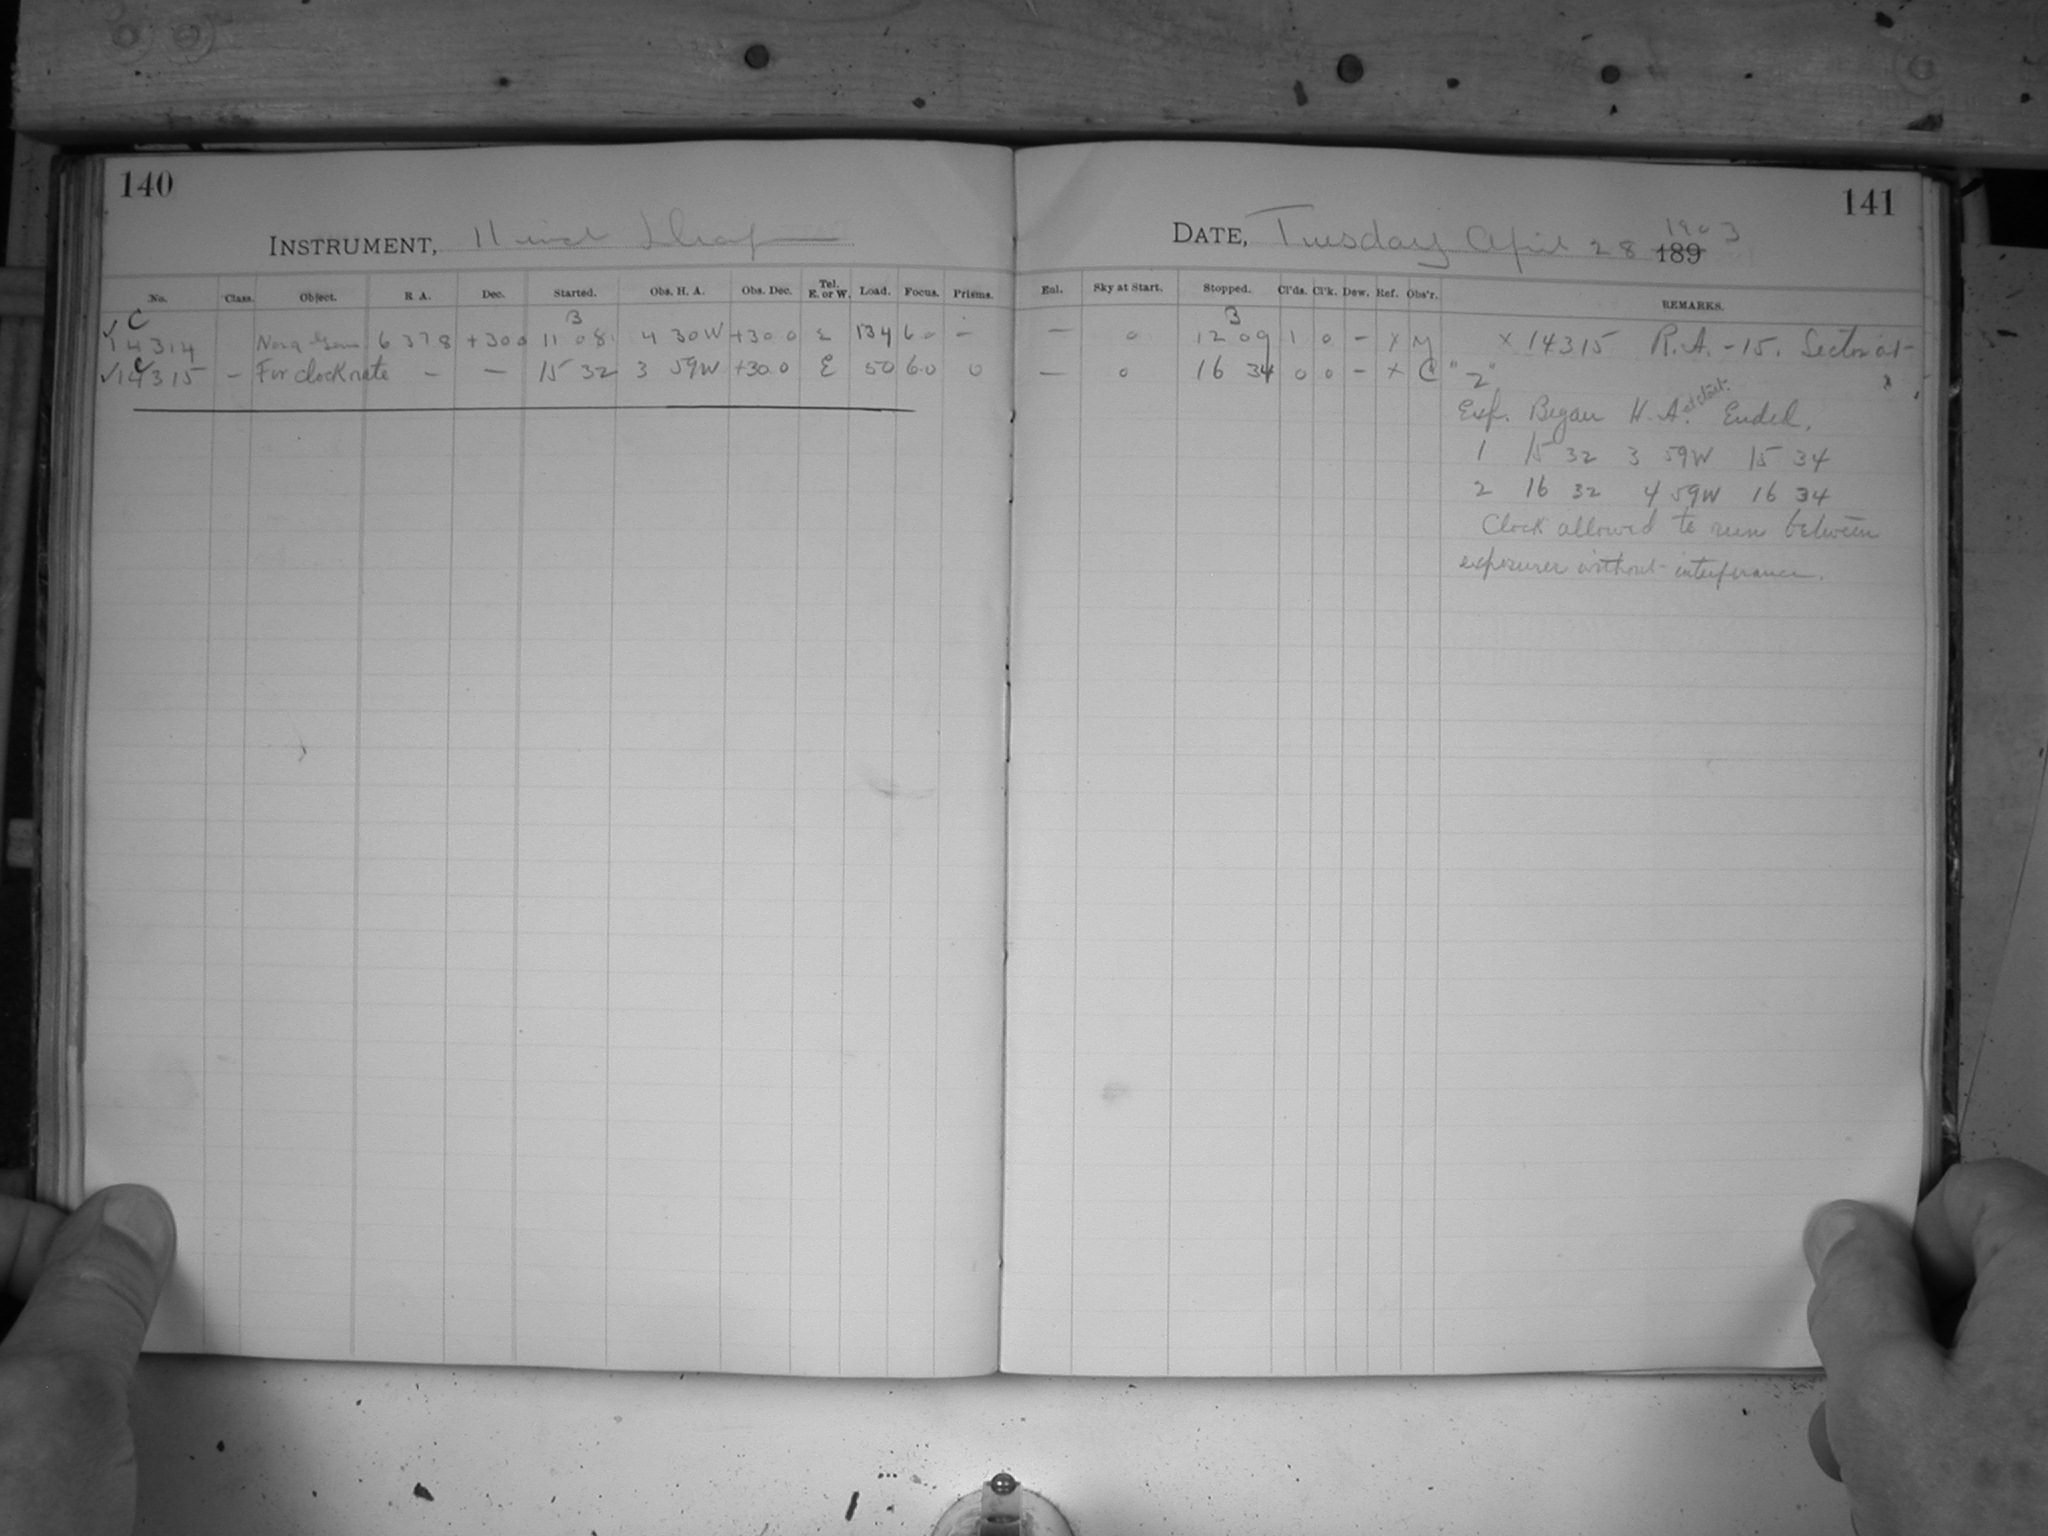 140
INSTRUMENT, 11 inch Draper
No. Class. Object. R. A. Dec. Started. Obs. H. A. Obs. Dec. Tel. E. or W. Load. Focus. Prisms.
C B
✓ 14314 Nova Gem 6 37.8 +30.0 11 08 4 30W +30.0 E 134 6.0 —
✓ C 14315 — For clock rate — — 15 32 3 59W +30.0 E 50 6.0 0
141
DATE, Tuesday April 28 1903 189
Eal. Sky at Start. Stopped. Cl'ds. Cl'k. Dew. Ref. Obs'r. REMARKS.
3
— 0 12 09 1 0 — x M x 14315 R.A. -15. Sector at
— 0 16 34 0 0 — x C "2"
Exp. Began H. A. at start. Ended.
1 15 32 3 59W 15 34
2 16 32 4 59W 16 34
Clock allowed to run between
exposures without interference.